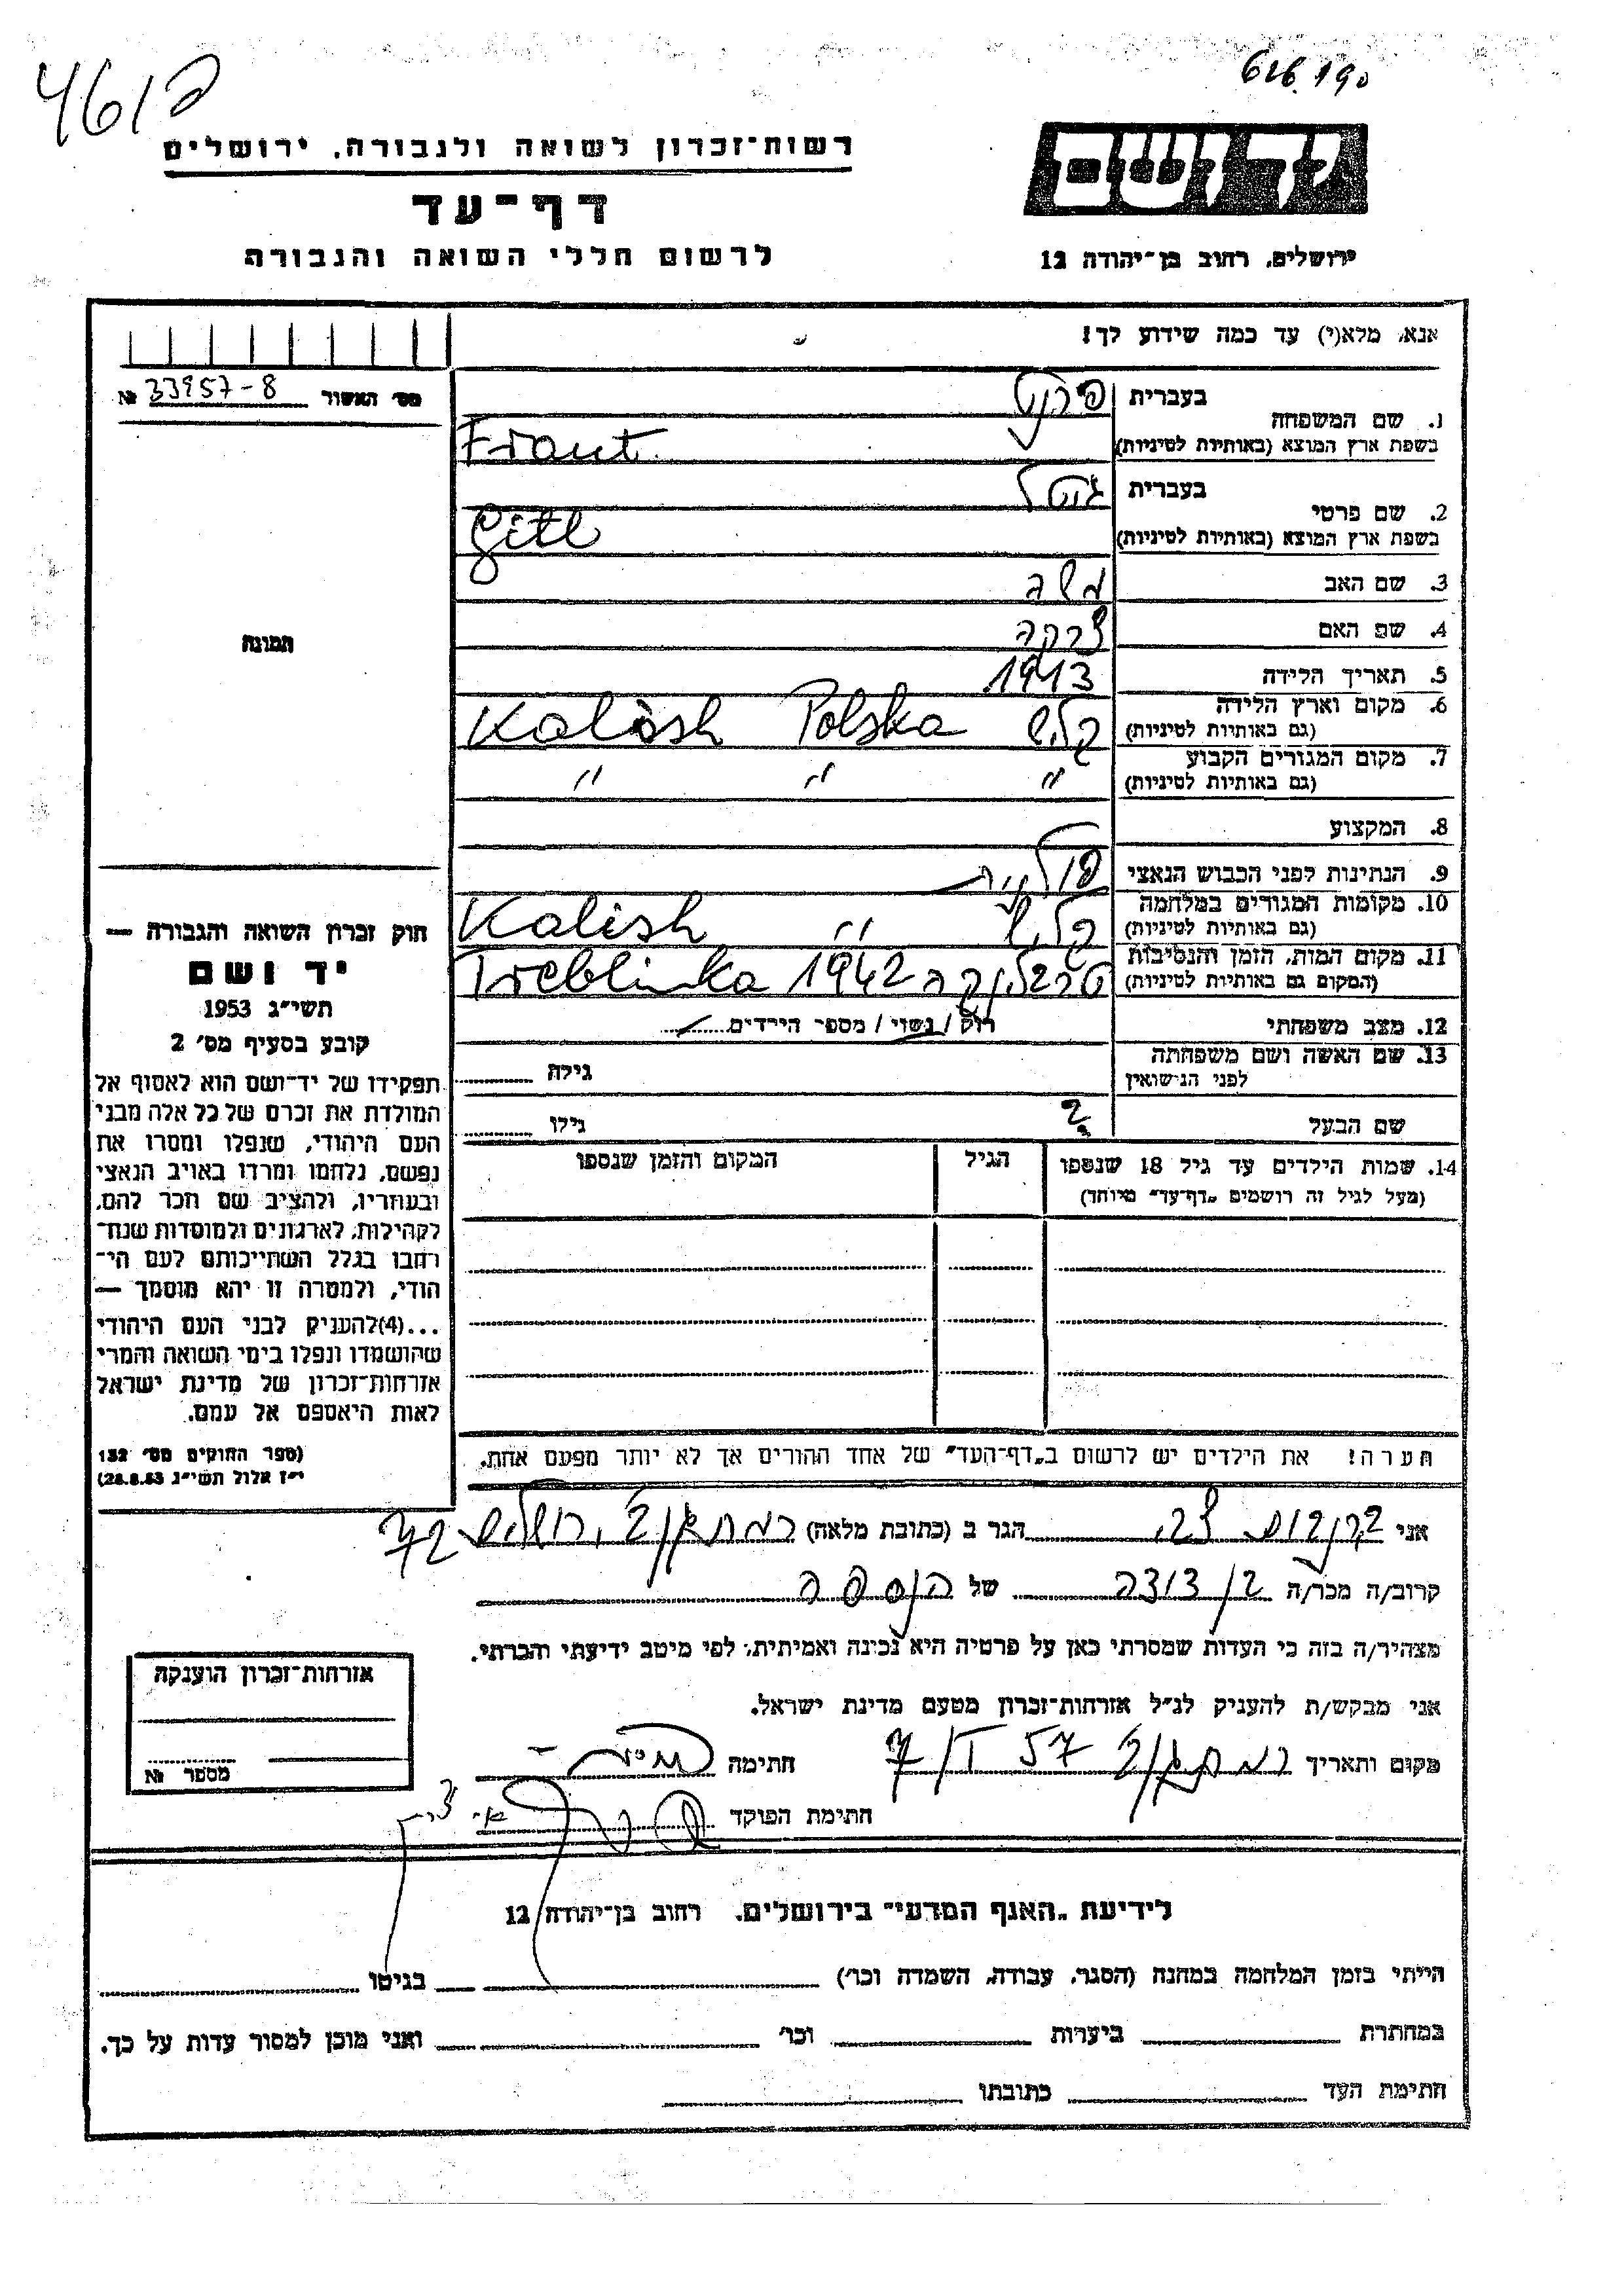 4612
רשות־זכרון לשואה ולגבורה, ירושלים
דף־עד
לרשום חללי השואה והגבורה
יד ושם
ירושלים, רחוב בן־יהודה 12
אנא, מלא(י) עד כמה שידוע לך!
מס' האשור № 33957-8
1. שם המשפחה
בעברית פרנט
בשפת ארץ המוצא (באותיות לטיניות) Frant
2. שם פרטי
בעברית גיטל
בשפת ארץ המוצא (באותיות לטיניות) Gitl
3. שם האב משה
4. שם האם
5. תאריך הלידה 1913
6. מקום וארץ הלידה
(גם באותיות לטיניות) קליש Polska Kalish
7. מקום המגורים הקבוע
(גם באותיות לטיניות) " " "
8. המקצוע
9. הנתינות לפני הכבוש הנאצי פולנית
10. מקומות המגורים במלחמה
(גם באותיות לטיניות) קליש " Kalish
11. מקום המות, הזמן והנסיבות
(המקום גם באותיות לטיניות) טרבלינקה 1942 Treblinka
12. מצב משפחתי רוק / נשוי / מספר הילדים
13. שם האשה ושם משפחתה
לפני הנישואין גילה
שם הבעל ? גילו
14. שמות הילדים עד גיל 18 שנספו
(מעל לגיל זה רושמים "דף־עד" מיוחד)
הגיל
המקום והזמן שנספו
הערה! את הילדים יש לרשום ב"דף־העד" של אחד ההורים אך לא יותר מפעם אחת.
תמונה
חוק זכרון השואה והגבורה —
יד ושם
תשי"ג 1953
קובע בסעיף מס' 2
תפקידו של יד־ושם הוא לאסוף אל
המולדת את זכרם של כל אלה מבני
העם היהודי, שנפלו ומסרו את
נפשם, נלחמו ומרדו באויב הנאצי
ובעוזריו, ולהציב שם וזכר להם,
לקהילות, לארגונים ולמוסדות שנח־
רחבו בגלל השתייכותם לעם הי־
הודי, ולמטרה זו יהא מוסמך —
...(4)להעניק לבני העם היהודי
שהושמדו ונפלו בימי השואה והמרי
אזרחות־זכרון של מדינת ישראל
לאות היאספם אל עמם.
(ספר החוקים מס' 132
י"ז אלול תשי"ג 28.8.53)
אני הגר ב (כתובת מלאה) רמת גן
קרוב/ה מכר/ה בן דודה של הנספה
מצהיר/ה בזה כי העדות שמסרתי כאן על פרטיה היא נכונה ואמיתית, לפי מיטב ידיעתי והכרתי.
אני מבקש/ת להעניק לנ"ל אזרחות־זכרון מטעם מדינת ישראל.
מקום ותאריך רמת גן חתימה
חתימת הפוקד
אזרחות־זכרון הוענקה
מספר №
לידיעת "האגף המדעי" בירושלים, רחוב בן־יהודה 12
הייתי בזמן המלחמה במחנה (הסגר, עבודה, השמדה וכו') בגיטו
במחתרת ביערות וכו' ואני מוכן למסור עדות על כך.
חתימת העד כתובתו